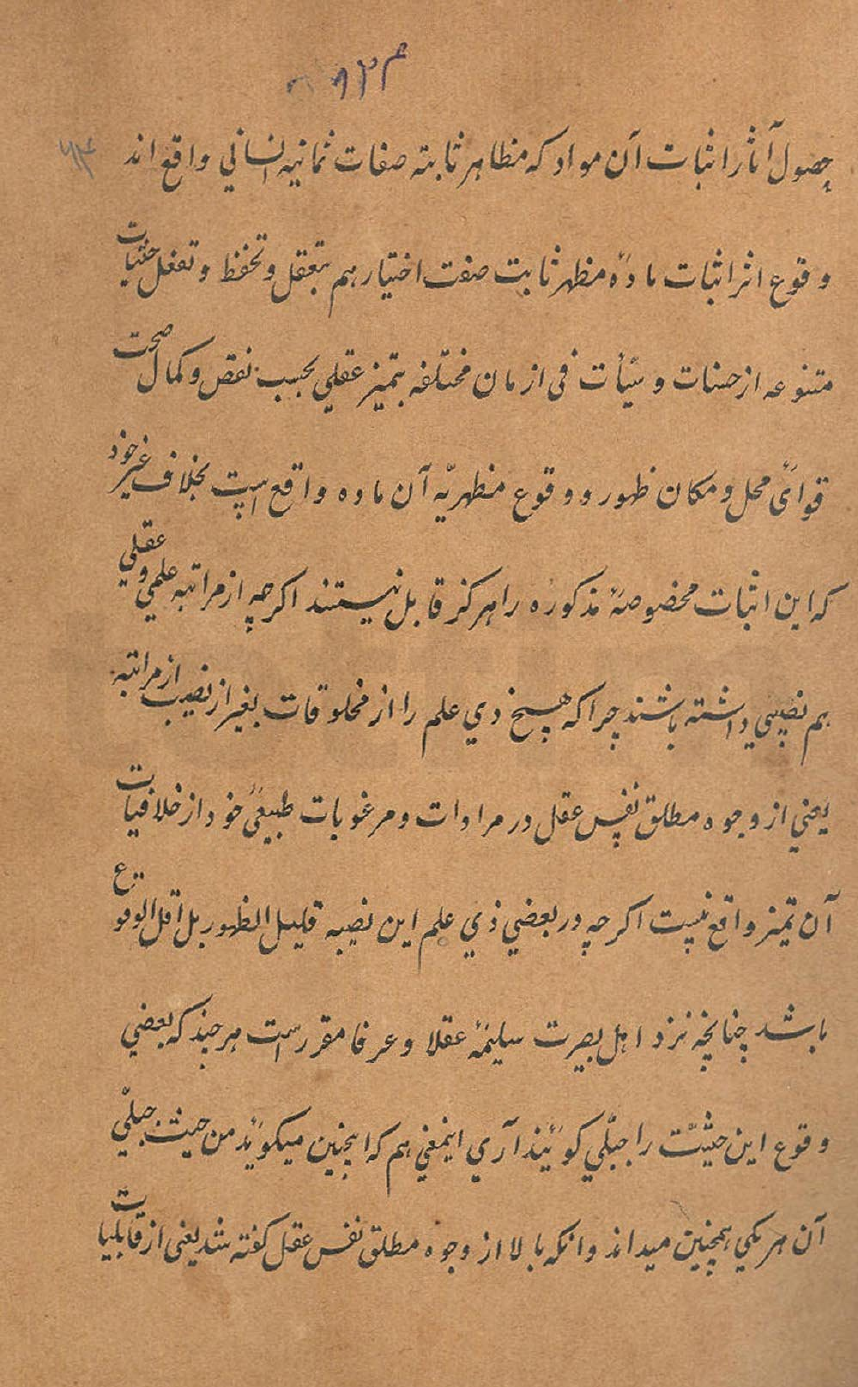 م ۹۲
حصول آثار اثبات آن مواد که مظاهر ثابته صفات ثمانیه انسانی واقع اند
وقوع اثر اثبات مادهٔ مظهر ثابت صفت اختیار هم بتعقل و تحفظ و تفعل حثیات
متنوعه از حسنات و سیّأت فی ازمان مختلفه بتمیز عقلی بحسب نقص و کمال صحت
قوائ محل و مکان ظهور و وقوع مظهریّه آن ماده واقع است بخلاف غیر خود
که این اثبات مخصوصهٔ مذکوره را هرکز قابل نیستند اکرچه از مراتبه علمی و عقلی
هم نصیبی داشته باشند چرا که هیچ ذی علم را از مخلوقات بغیر از نصیب از مراتبه
یعنی از وجوه مطلق نفس عقل در مرادات و مرغوبات طبیعیٔ خود از خلافیات
آن تمیز واقع نیست اکرچه در بعضی ذی علم این نصیبه قلیل الظهور بل اقل الوقوع
باشد چنانچه نزد اهل بصیرت سلیمهٔ عقلا و عرفا مقرر است هر چند که بعضی
وقوع این حیثیّت را جبلّی کویند آری اینمعنی هم که اینچنین میکویند من حیث جبلّی
آن هر یکی همچنین میداند وانکه بالا از وجوه مطلق نفس عقل کفته شد یعنی از قابلیات